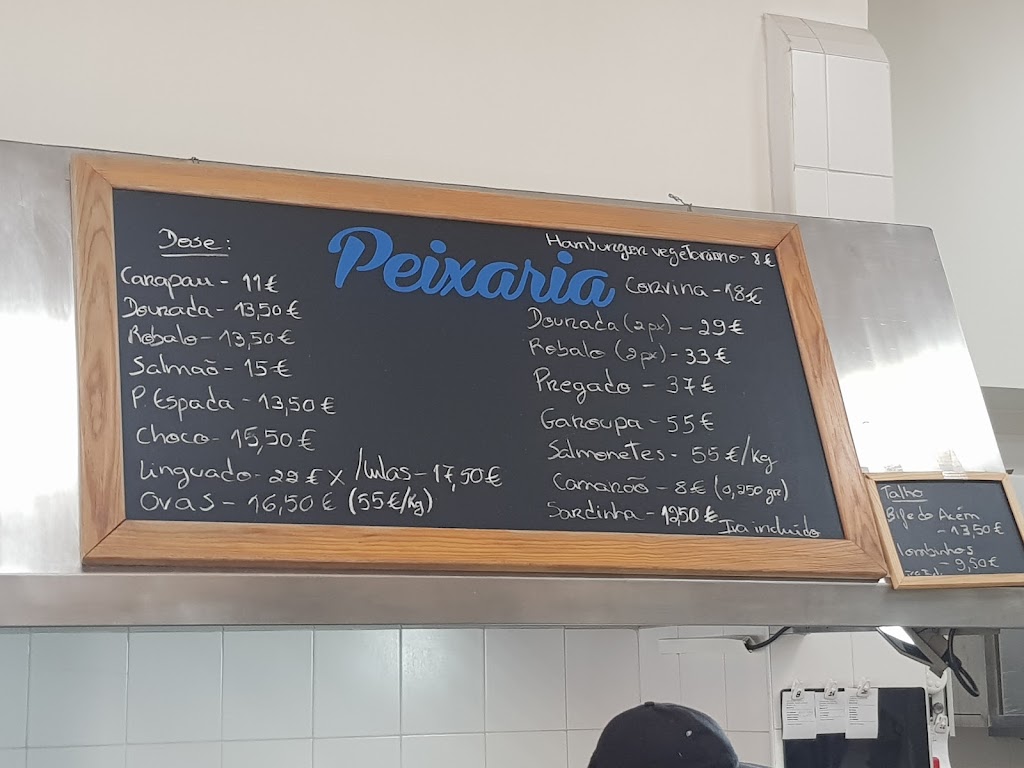 Peixaria
Dose:
Carapau - 11€
Dourada - 13,50€
Robalo - 13,50€
Salmão - 15€
P. Espada - 13,50€
Choco - 15,50€
Linguado - 22€ x /lulas - 17,50€
Ovas - 16,50€ (55€/Kg)
Hamburger vegetariano - 8€
Corvina - 18€
Dourada (2px) - 29€
Robalo (2px) - 33€
Pregado - 37€
Garoupa - 55€
Salmonetes - 55€/Kg
Camarão - 8€ (0,250gr)
Sardinha -
Iva incluido
Talho
Bife do Acém
- 13,50€
lombinhos
- 9,50€